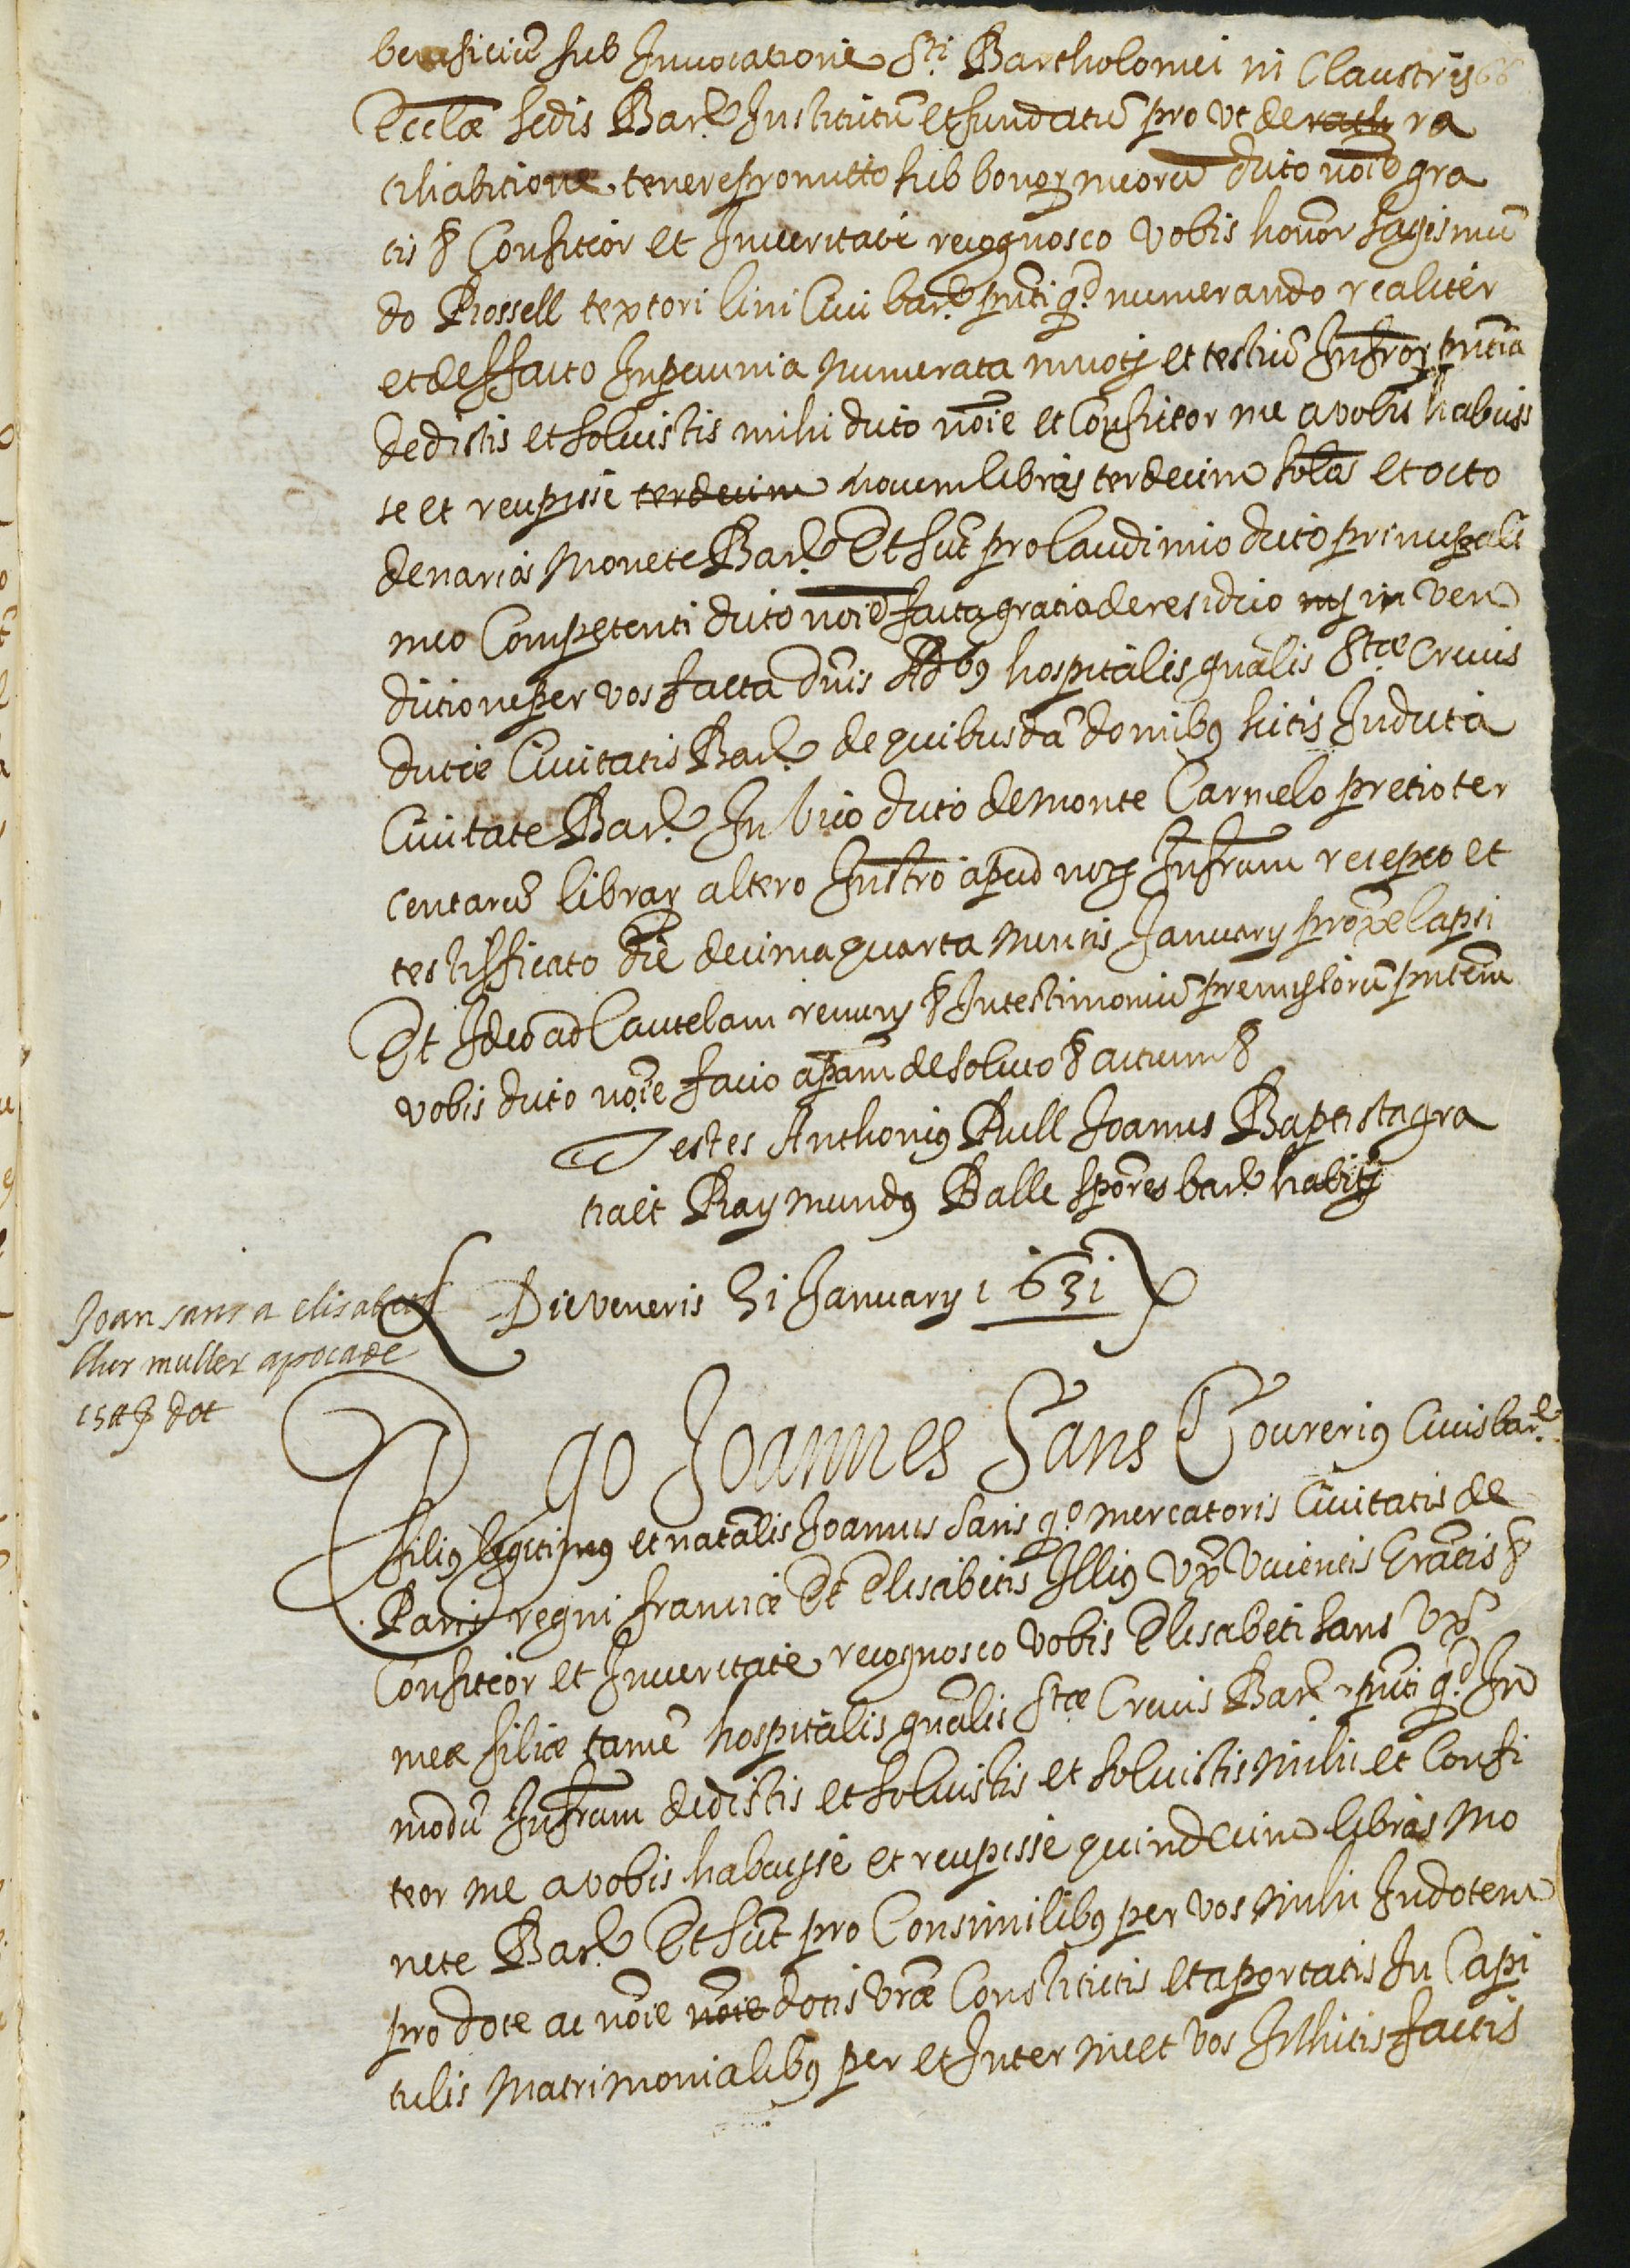 beneficiũ sub Invocatione Sti Bartholomei in Claustris 66
Eccłae sedis Barne Institutũ et fundatũ pro vt de rath ra
tihabitione tenere promitto sub bonor meorũ dicto noie gra
tis & Confiteor et In veritate recognosco vobis honor sagismũ
do Rossell textori lini Civi barne pnti qd numerando realiter
et de ffacto In pecunia numerata nuotj et testiũ Infror pntia
dedistis et soluistis mihi dicto noie et Confiteor me a vobis habuis
se et recepisse terdecim novem libras terdecim solos et octo
denarios Monete Barne Et sũt pro laudimio dicto principali
meo Competenti dicto noie facta gratia de residuo nj in ven
ditione per vos facta Dnis Adbq hospitalis gñalis Stae Crucis
dictae Civitatis Barne de quibusdã domibq sitis In dicta
Civitate Barne In vico dicto de Monte Carmelo pretio ter
centarũ librar altero Instro apud nots Infrum recepto et
testifficato die decima quarta Mensis January proxe lapsi
Et Ideo ad Cautelam renuns & In testimoniũ premissorũ pntem
vobis dicto noie facio apam de soluto & actum &
Testes Anthoniq Rull Joannes Baptista gra
tiact Raymundq Balle sptores barne habitj
Die veneris 31 January 1631
Joan sans a elisabet
sa muller apoca de
15 ₶ p dot
Ego Joannes Sans Tourneriq Civis barne
filiq legitimq et natalis Joannis Sans qo mercatoris Civitatis de
Paris regni franciae Et Elisabetis Illiq vx viventis Gratis &
Confiteor et In veritate recognosco vobis Elisabeti Sans vx
meae filiae tamẽ hospitalis gñalis Stae Crucis Barne pnti qd In
modũ Infrum dedistis et soluistis et soluistis mihi et Confi
teor me a vobis habuisse et recepisse quindecim libras mo
nete Barne Et sũt pro Consimilibq per vos mihi In dotem
pro dote ac noie noie dotis vrae Constitutis et aportatis In Capi
tulis Matrimonialibq per et Inter me et vos Initis factis